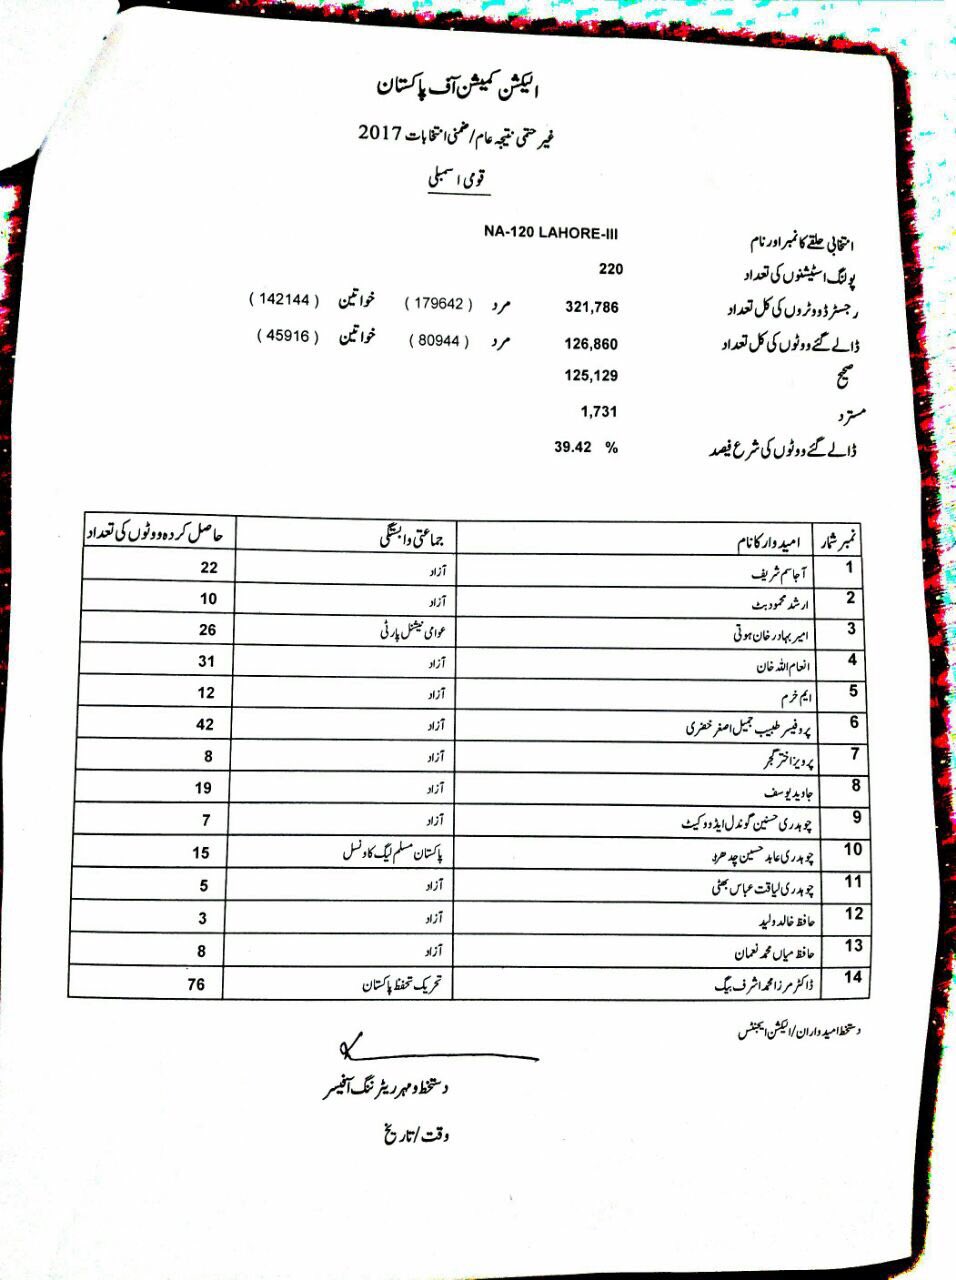 الیکشن کمیشن آف پاکستان
غیر حتمی نتیجہ عام/ضمنی انتخابات 2017
قومی اسمبلی
انتخابی حلقے کا نمبر اور نام NA-120 LAHORE-III
پولنگ اسٹیشنوں کی تعداد 220
رجسٹرڈ ووٹروں کی کل تعداد 321,786 مرد ( 179642 ) خواتین ( 142144 )
ڈالے گئے ووٹوں کی کل تعداد 126,860 مرد ( 80944 ) خواتین ( 45916 )
صحیح 125,129
مسترد 1,731
ڈالے گئے ووٹوں کی شرع فیصد 39.42 %
نمبر شمار امیدوار کا نام جماعتی وابستگی حاصل کردہ ووٹوں کی تعداد
1 آجاسم شریف آزاد 22
2 ارشد محمود بٹ آزاد 10
3 امیر بہادر خان ہوتی عوامی نیشنل پارٹی 26
4 انعام اللہ خان آزاد 31
5 ایم خرم آزاد 12
6 پروفیسر طبیب جمیل اصغر خضری آزاد 42
7 پرویز اختر گجر آزاد 8
8 جاوید یوسف آزاد 19
9 چوہدری حسنین گوندل ایڈووکیٹ آزاد 7
10 چوہدری عابد حسین چدھرد پاکستان مسلم لیگ کاونسل 15
11 چوہدری لیاقت عباس بھٹی آزاد 5
12 حافظ خالد ولید آزاد 3
13 حافظ میاں محمد نعمان آزاد 8
14 ڈاکٹر مرزا محمد اشرف بیگ تحریک تحفظ پاکستان 76
دستخط امیدواران/الیکشن ایجنٹس
دستخط و مہر ریٹرننگ آفیسر
وقت/تاریخ